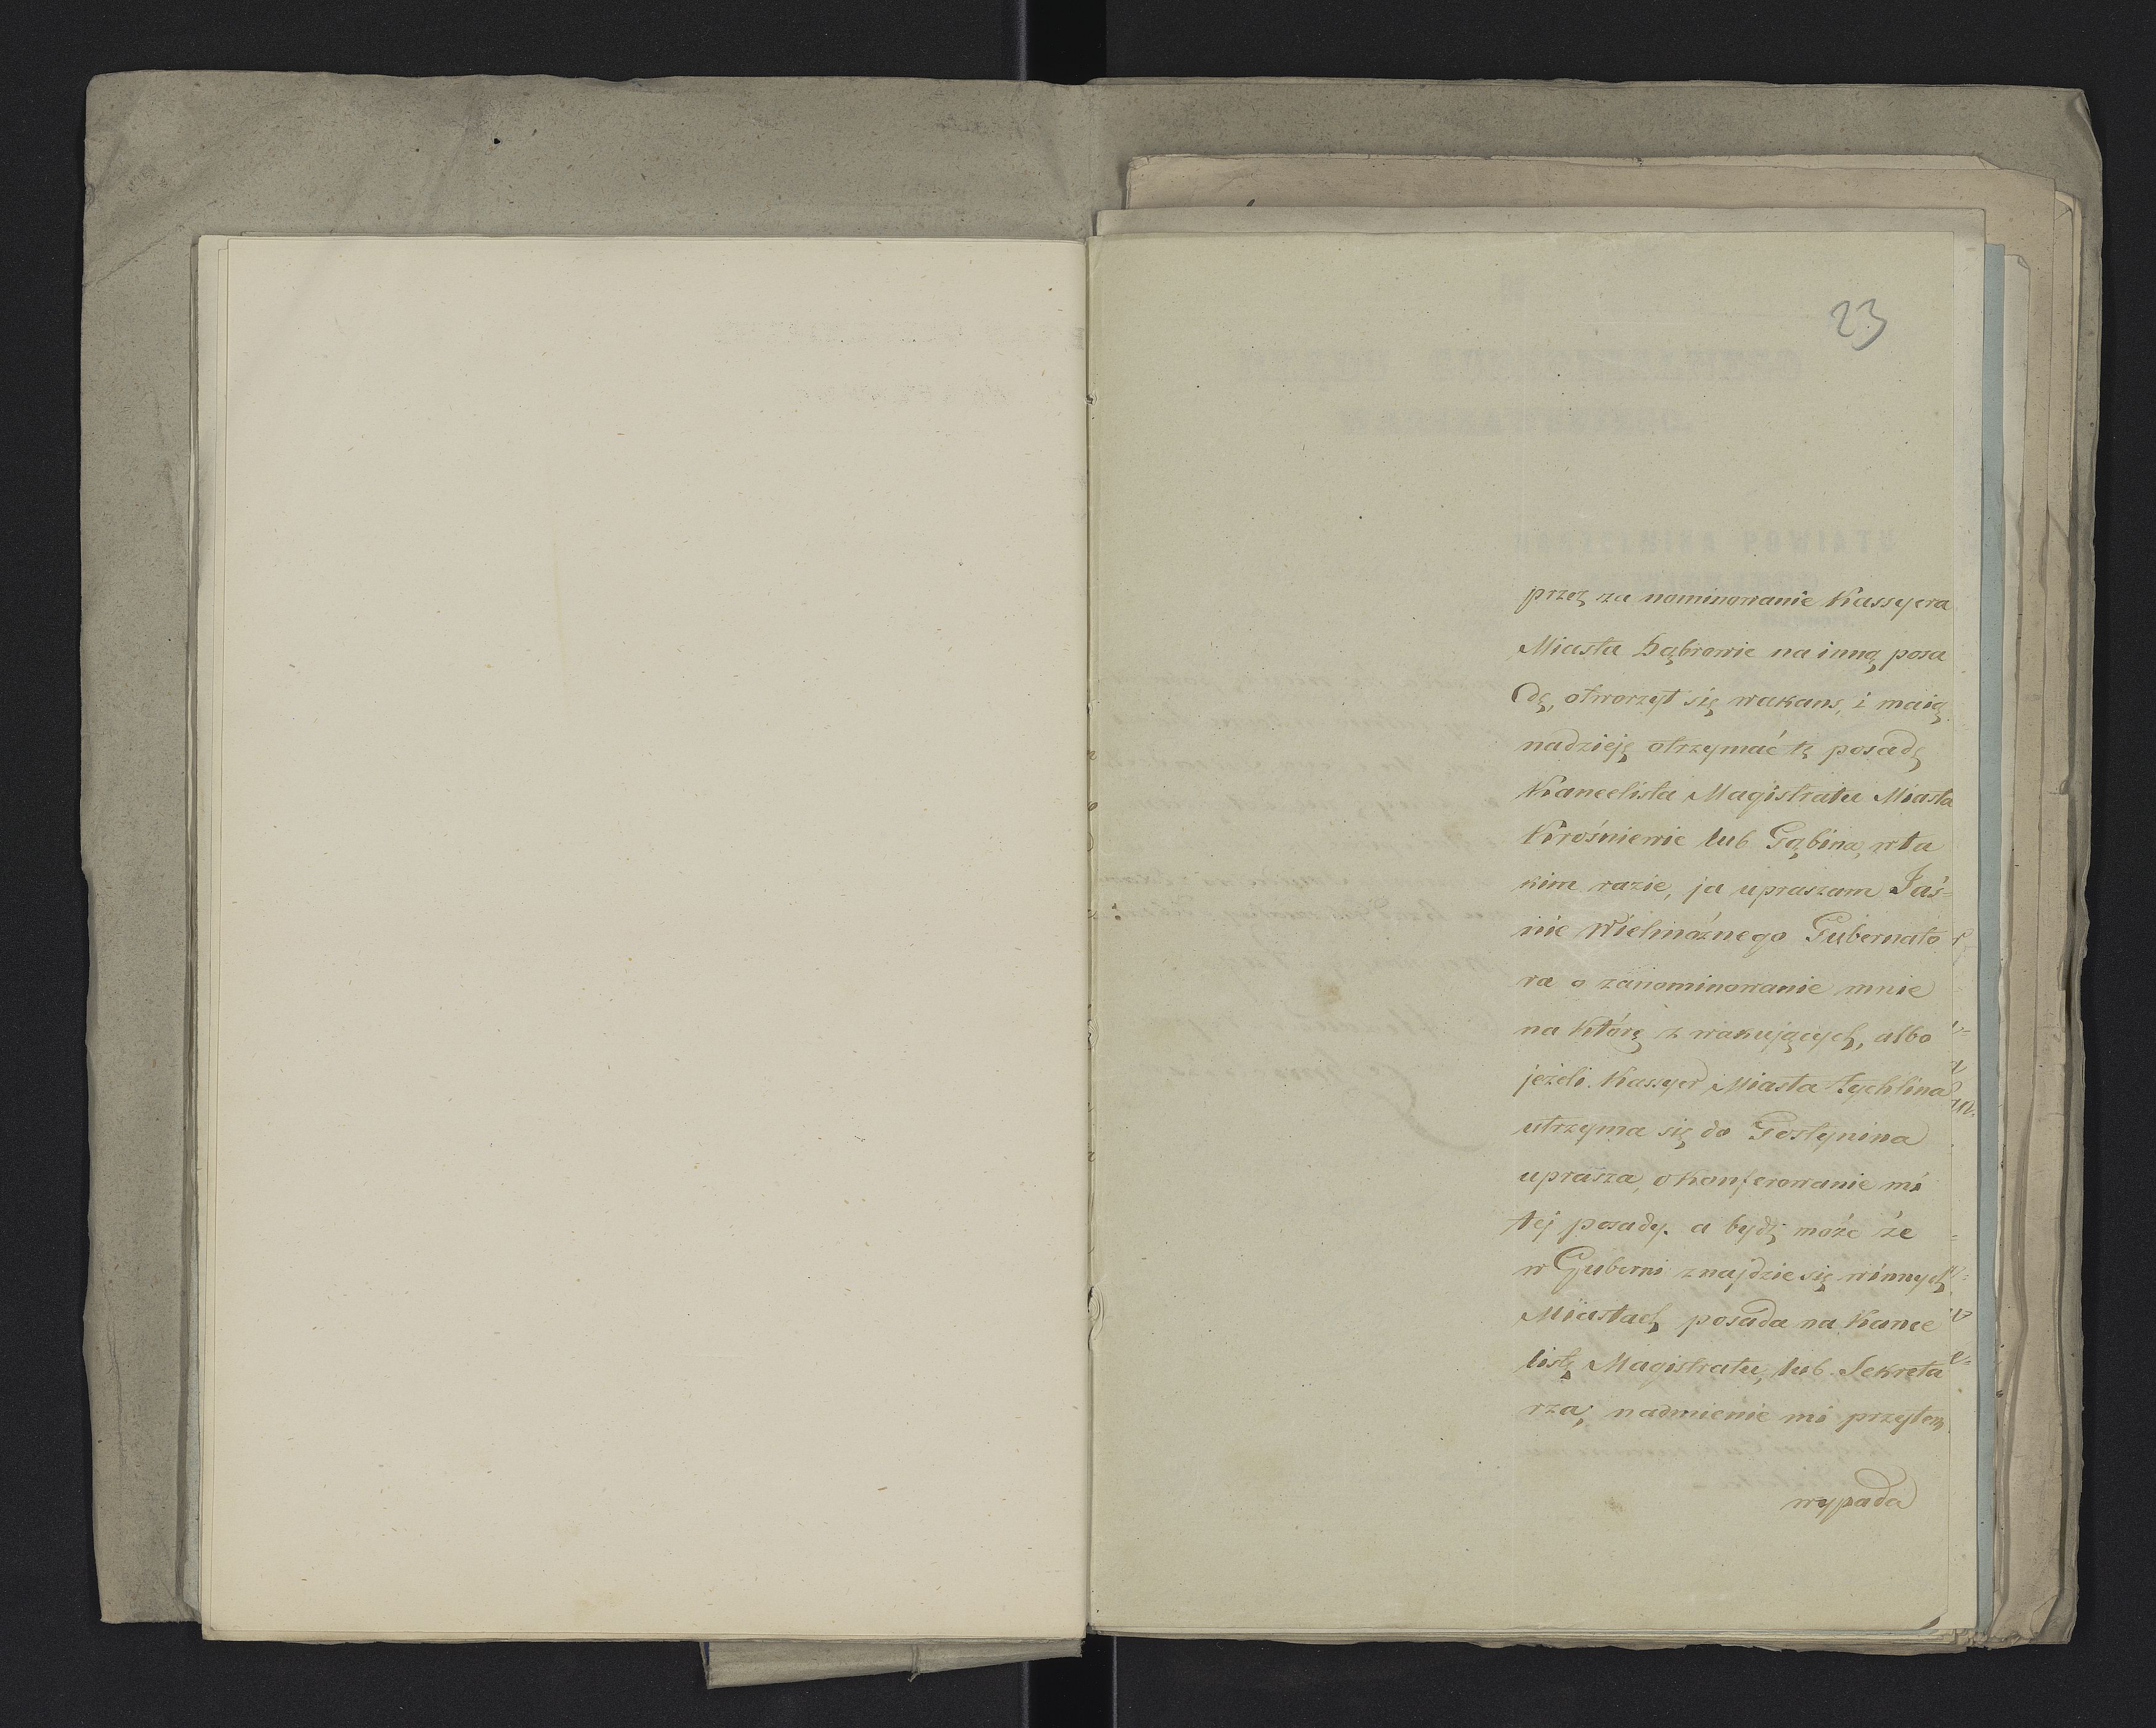 23
przez za nominowanie Kassyera
Miasta Dąbrowie na inną posa
dę, otworzył się wakans, i maią
nadzieję otrzymać tę posadę
Kancelista Magistratu Miasta
Krośniewic lub Gąbina, w ta
kim razie, ja upraszam Jaś-
nie Wielmożnego Gubernato
ra o zanominowanie mnie
na którą z wakujących, albo
jeżeli Kassyer Miasta Żychlina
utrzyma się do Gostynina
uprasza, o Konferowanie mi
tej posady. a bydź może że
w Guberni znajdzie się w innych
Miastach posada na Kance
listę Magistratu, lub Sekreta
rza, nadmienie mi przytem
wypada